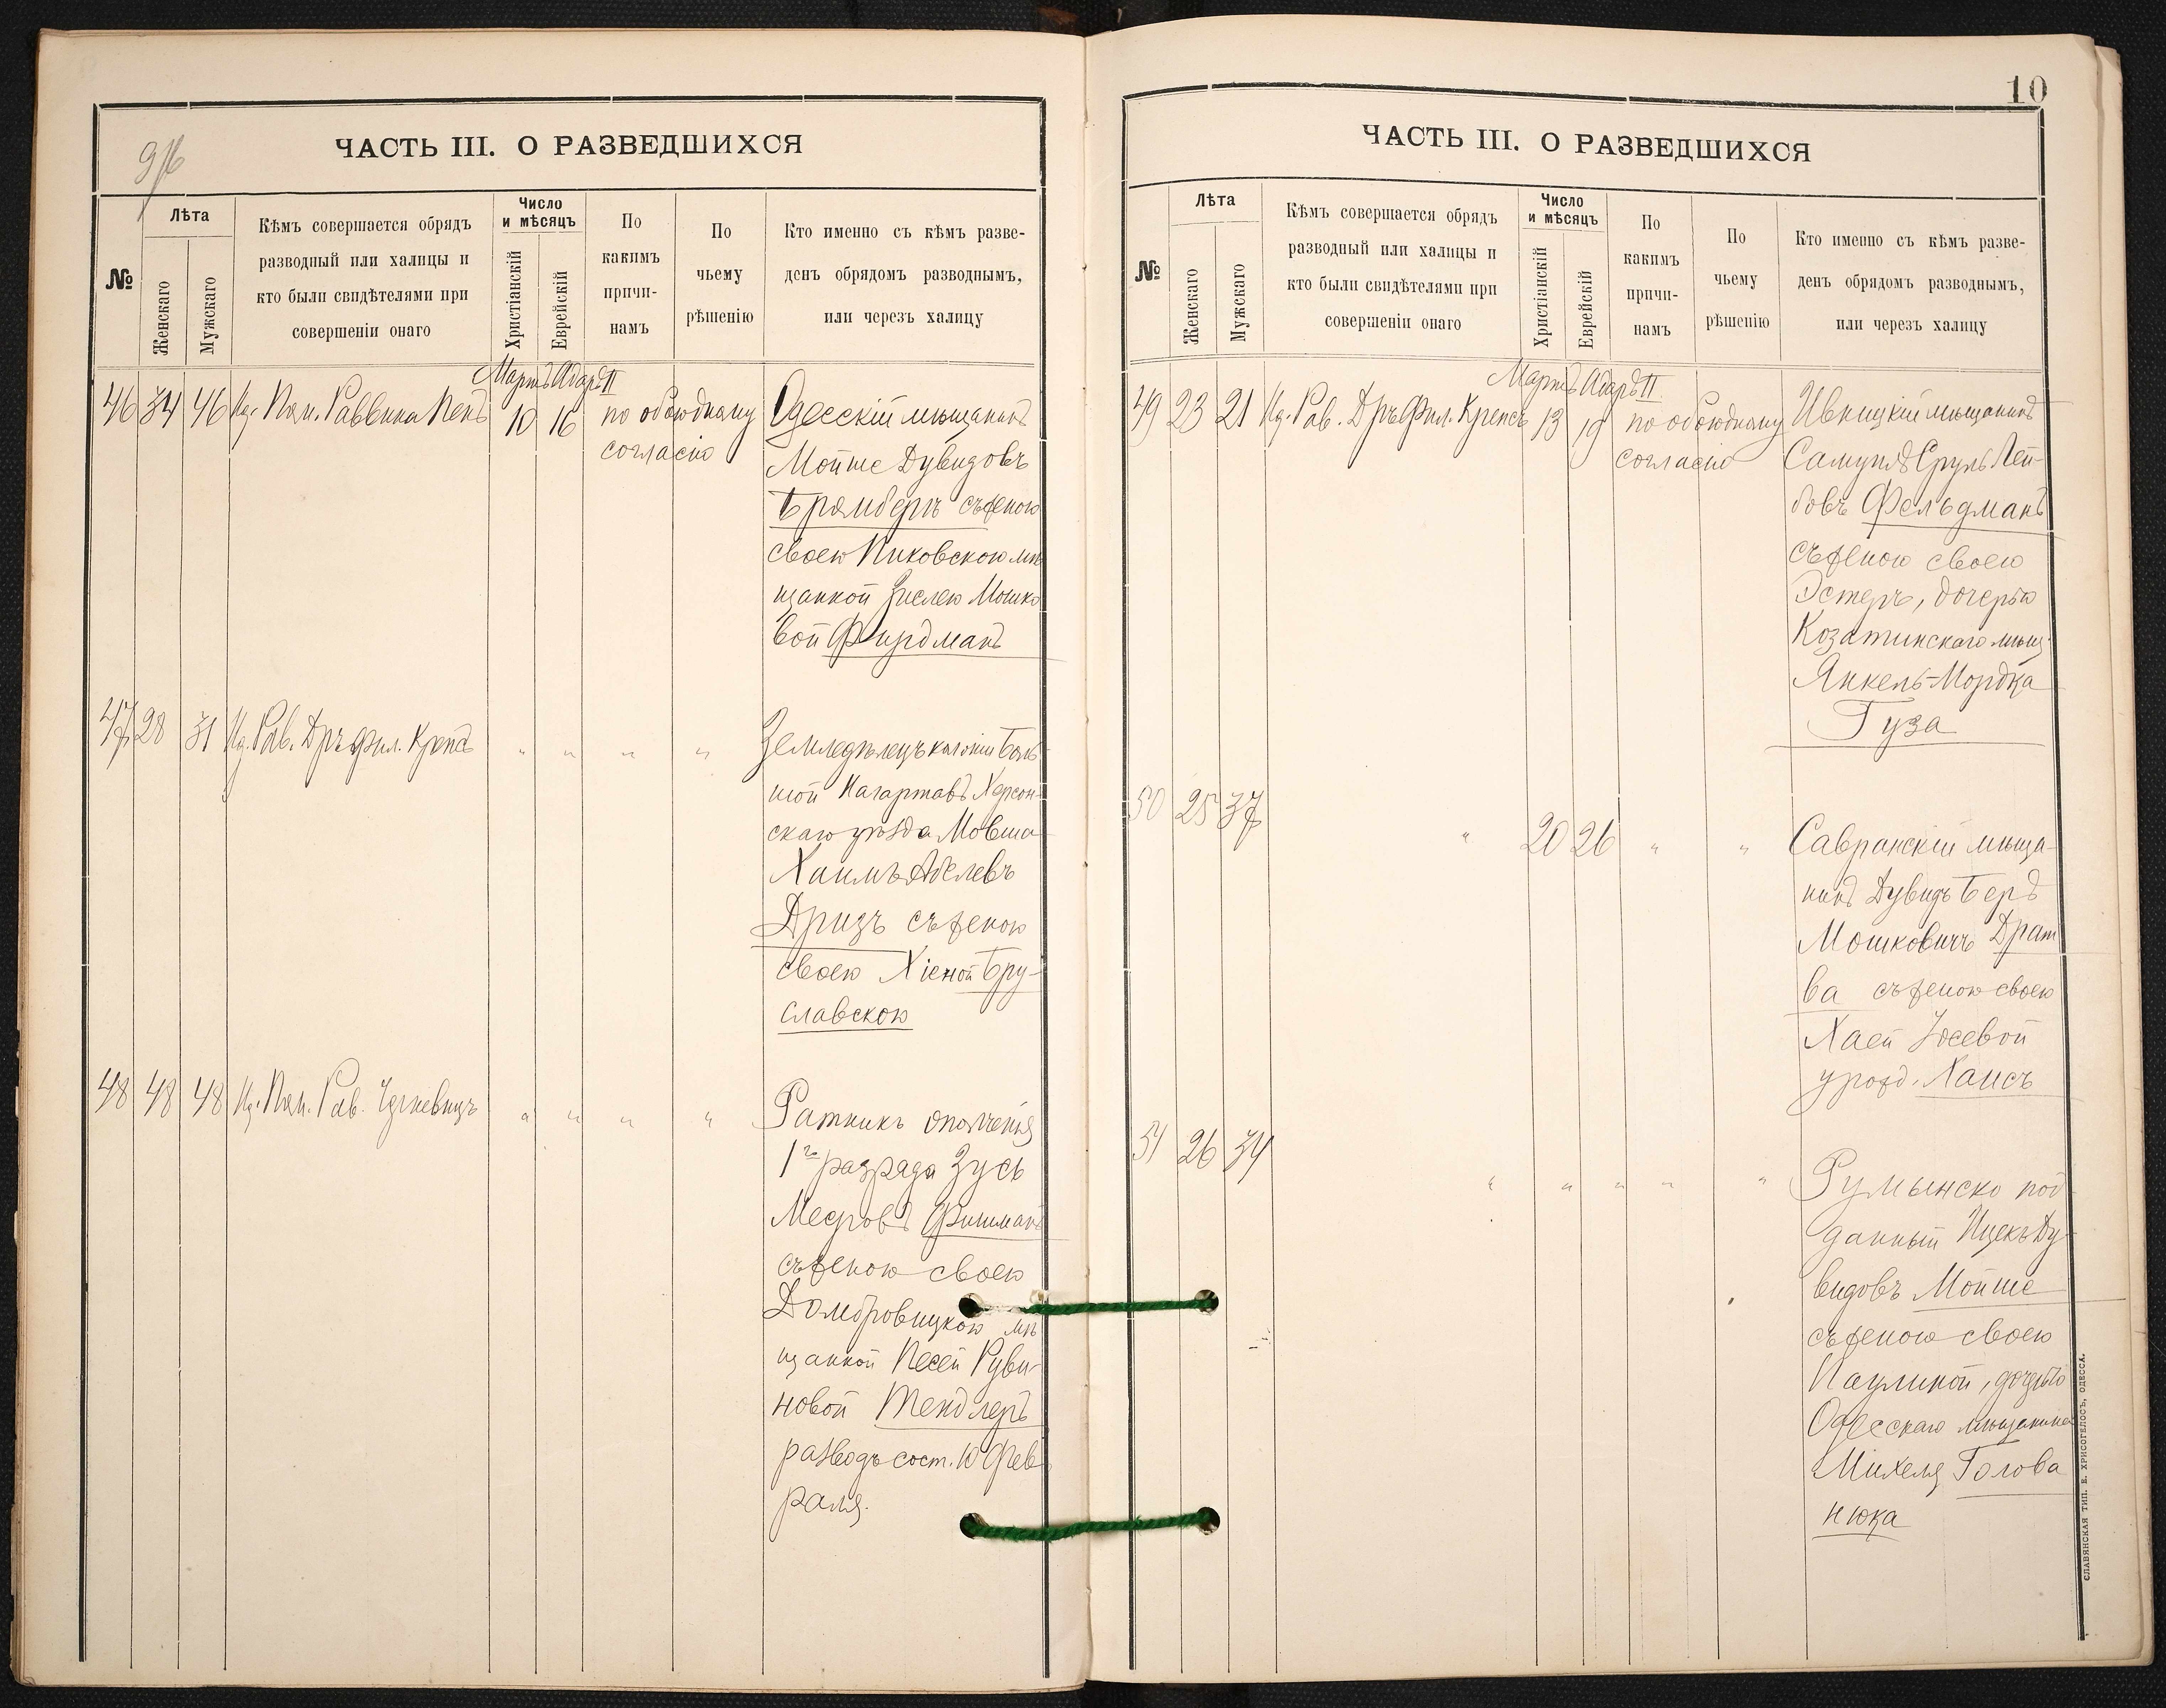 9/б
ЧАСТЬ III. О РАЗВЕДШИХСЯ
№
Лѣта
Женскаго
Мужскаго
Кѣмъ совершается обрядъ
разводный или халицы и
кто были свидѣтелями при
совершеніи онаго
Число
и мѣсяцъ
Христіанскій
Еврейскій
По
какимъ
причи-
намъ
По
чьему
рѣшенію
Кто именно съ кѣмъ разве-
денъ обрядомъ разводнымъ,
или черезъ халицу
Мартъ Адаръ II
46 34 46 Ис. Пом. Раввина Пенъ 10 16 по обоюдному
согласію
Одесскій мѣщанинъ
Мойше Дувидовъ
Бромбергъ съ женою
своею Пиковскою мѣ
щанкой Зислею Мошко
вой Фурдманъ
47 28 31 Ис. Рав. Дръ Фил. Крепсъ " " " "
Земледѣлецъ колоніи Боль
шой Нагартавъ Херсон-
скаго уѣзда Мовша
Хаимъ Абелевъ
Дризъ съ женою
своею Хіеной Бру-
славскою
48 48 48 Ис. Пом. Рав. " " " "
Ратникъ ополченія
1го разряда Зусь
Меровъ Фишманъ
съ женою своею
Домбровицкою мѣ
щанкой Песей Руви-
новой Тендлеръ
разводъ сост. 10 Фев
раля.
10
ЧАСТЬ III. О РАЗВЕДШИХСЯ
№
Лѣта
Женскаго
Мужскаго
Кѣмъ совершается обрядъ
разводный или халицы и
кто были свидѣтелями при
совершеніи онаго
Число
и мѣсяцъ
Христіанскій
Еврейскій
По
какимъ
причи-
намъ
По
чьему
рѣшенію
Кто именно съ кѣмъ разве-
денъ обрядомъ разводнымъ,
или черезъ халицу
Мартъ Адаръ II
49 23 21 Ис. Рав. Дръ Фил. Крепсъ 13 19 по обоюдному
согласію
Ивницкій мѣщанинъ
Самуилъ Сруль Лей-
бовъ Фельдманъ
съ женою своею
Эстеръ, дочерью
Козатинскаго мѣщ.
Янкель-Мордка
Гуза
50 25 37 " 20 26 " "
Савранскій мѣща-
нинъ Дувидъ Беръ
Мошковичъ Драт
ва съ женою своею
Хаей Іосевой
урожд. Хаисъ
51 26 34 " " " " "
Румынско под
данный Ицекъ Ду
видовъ Мойше
съ женою своею
Паулиной, дочерью
Одесскаго мѣщанина
Михеля Голова
нюка
СЛАВЯНСКАЯ ТИП. Е. ХРИСОГЕЛОСЪ, ОДЕССА.